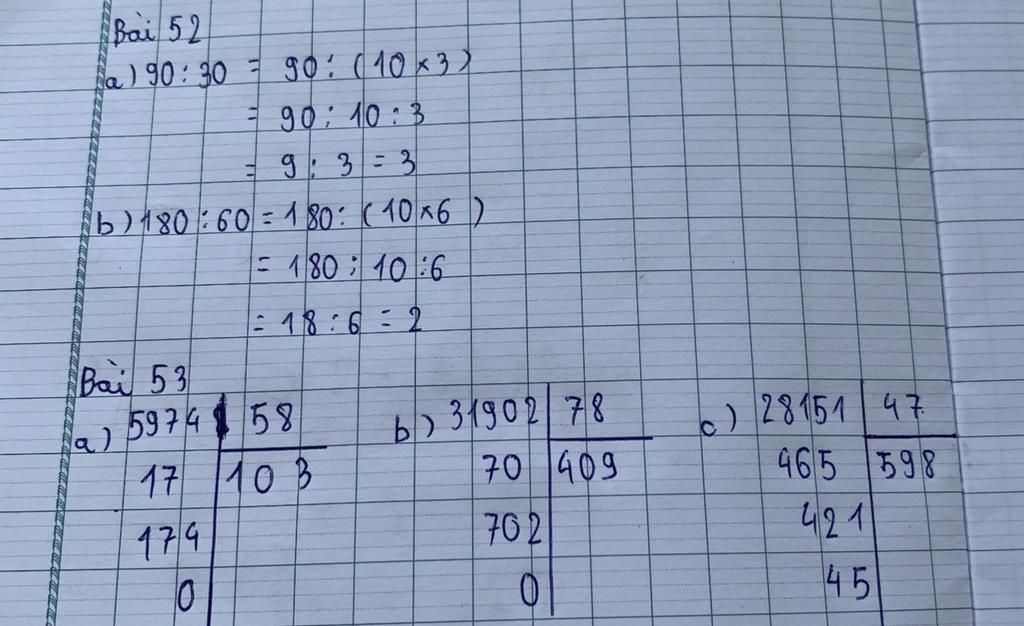 Bài 52
a) 90 : 30 = 90 : (10 × 3)
= 90 : 10 : 3
= 9 : 3 = 3
b) 180 : 60 = 180 : (10 × 6)
= 180 : 10 : 6
= 18 : 6 = 2
Bài 53
a) 5974 58 b) 31902 78 c) 28151 47
17 103 70 409 465 598
174 702 421
0 0 45